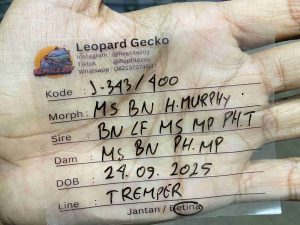 Leopard Gecko
Instagram : @Reptilezoy
Tiktok : @Reptilezoy
Whatsapp : 08213737467
REPTILEZOY
Kode : J-343/400
Morph : MS BN H.MURPHY.
Sire : BN LF MS MP PH.T
Dam : MS BN PH.MP
DOB : 24.09.2025
Line : TREMPER
Jantan / Betina